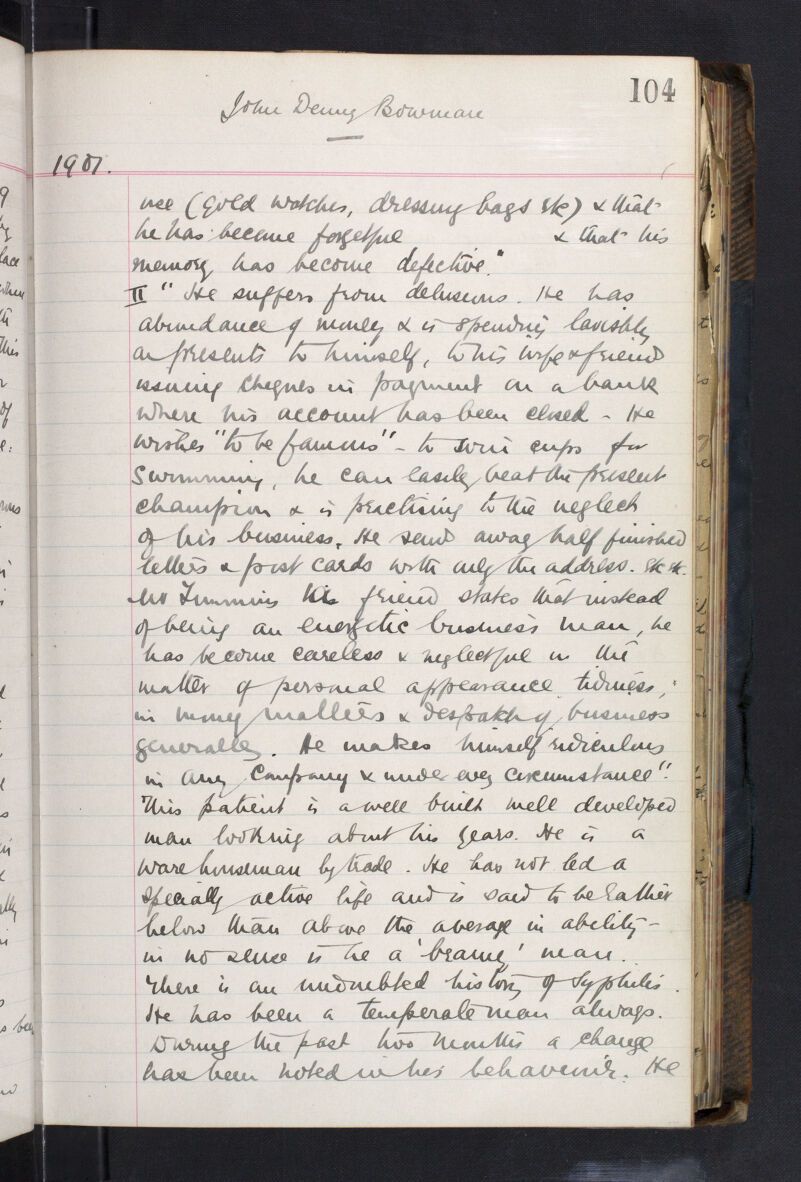 104
John Denny Bowman
1901.
use (gold watches, dressing bags etc) & that
he has become forgetful & that his
memory has become defective."
II " He suffers from delusions. He has
abundance of money & is spending lavishly
on presents to himself, to his wife & friend
issuing cheques in payment on a bank
where his account has been closed - He
wishes "to be famous" - to win cups for
Swimming, he can easily beat the present
champion & is practising to the neglect
of his business. He sends away half finished
letters & post cards with only the address. etc etc.
Mr Timmins his friend states that instead
of being an energetic business man, he
has become careless & neglectful in the
matter of personal appearance, tidiness,
in money matters & despatch of business
generally. He makes himself ridiculous
in any company & under every circumstance".
This patient is a well built well developed
man looking about his years. He is a
warehouseman by trade. He has not led a
specially active life and is said to be rather
below than above the average in ability -
in no sense is he a 'brainy' man.
There is an undoubted history of Syphilis.
He has been a temperate man always.
During the past two months a change
has been noted in his behaviour. He